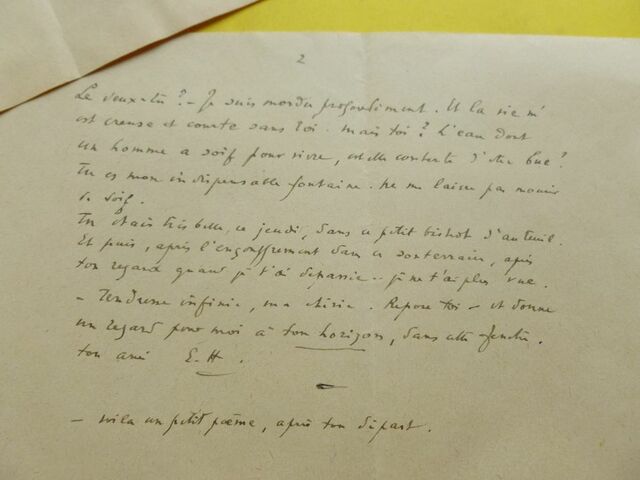 2
Le veux-tu ? – Je suis mordu profondément. Et la vie m'
est creuse et courte sans toi. mais toi ? L'eau dont
un homme a soif pour vivre, est-elle contente d'être bue ?
Tu es mon indispensable fontaine. ne me laisse pas mourir
de soif.
Tu étais très belle, ce jeudi, dans ce petit bistrot d'auteuil.
Et puis, après l'engouffrement dans ce souterrain, après
ton regard quand je t'ai dépassée.. je ne t'ai plus vue.
– Tendresse infinie, ma chérie. Repose toi – et donne
un regard pour moi à ton horizon, dans cette fenêtre.
ton ami E.H.
– voilà un petit poème, après ton départ.